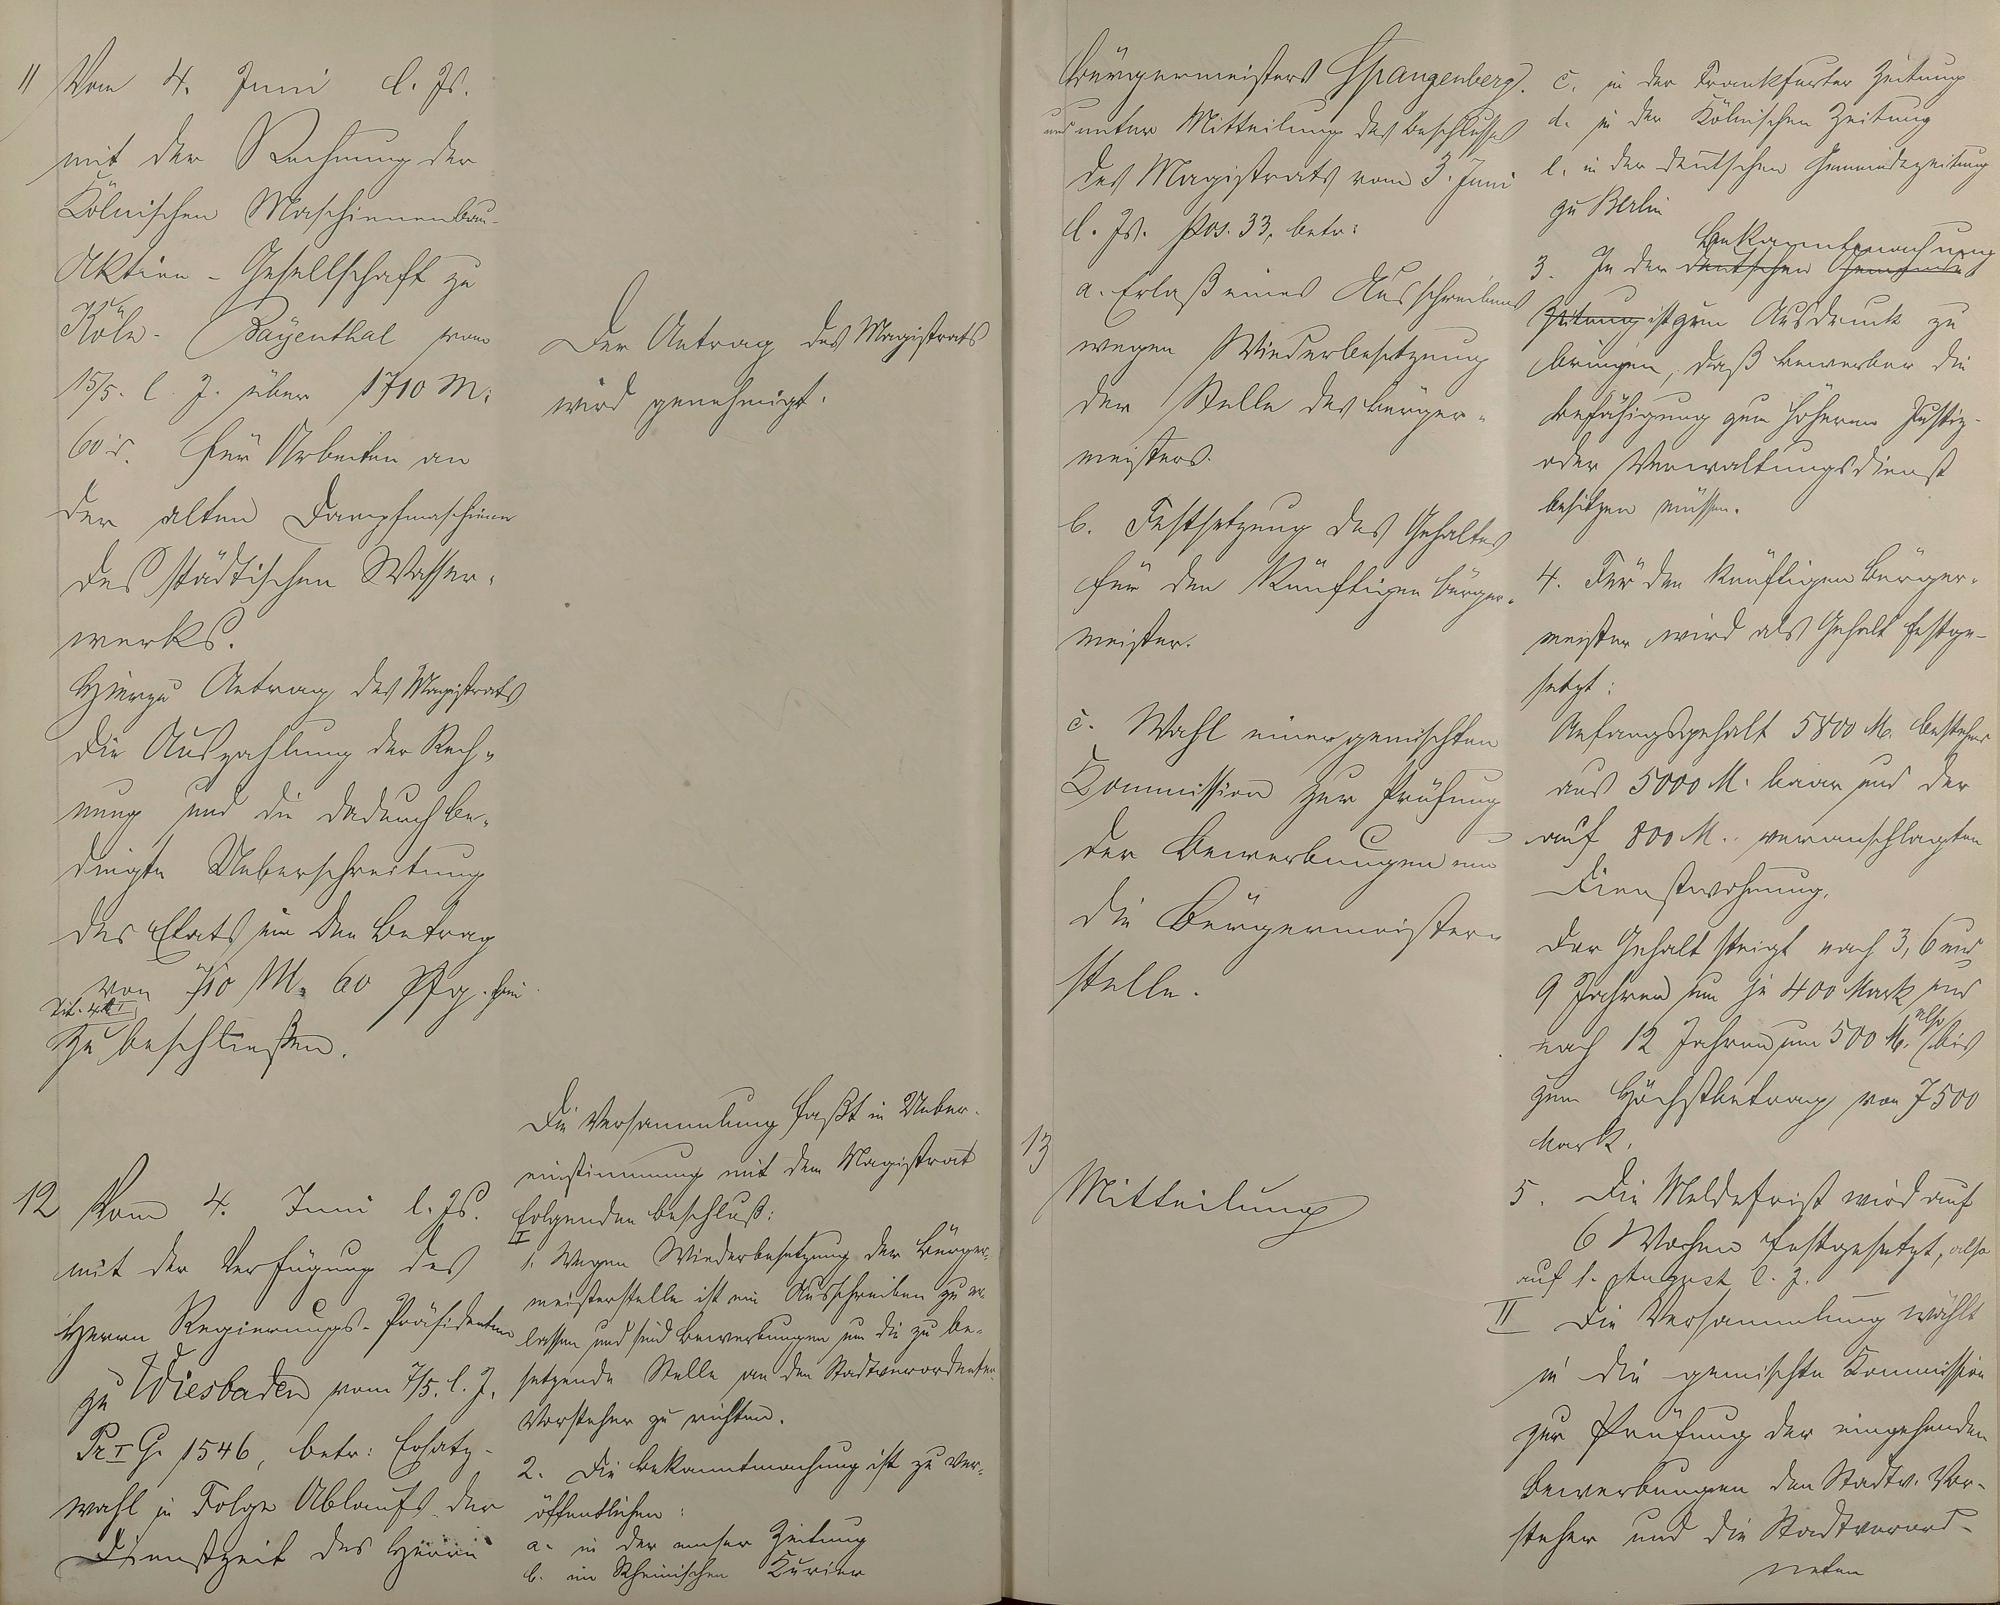 11 Vom 4. Juni l. Js.
mit der Rechnung der
Kölnischen Maschinenbau-
Aktien-Gesellschaft zu
Köln-Bayenthal vom
15/5. l. J. über 1710 M:
60 d. für Arbeiten an
der alten Dampfmaschine
des städtischen Wasser-
werks.
Hierzu Antrag des Magistrats
die Auszahlung der Rech-
nung und die dadurch be-
dingte Ueberschreitung
des Etats um den Betrag
von 710 M. 60 Pfg. bei
Tit.
zu beschließen.
Der Antrag des Magistrats
wird genehmigt.
12 Vom 4. Juni l. Js.
mit der Verfügung des
Herrn Regierungs-Präsidenten
zu Wiesbaden vom 7/5. l. J.
Pr I G. 1546, betr: Ersatz-
wahl in Folge Ablaufs der
Dienstzeit des Herrn
Die Versammlung faßt in Ueber-
einstimmung mit dem Magistrat
folgenden Beschluß:
I
1. Wegen Wiederbesetzung der Bürger-
meisterstelle ist ein Ausschreiben zu er-
lassen und sind Bewerbungen um die zu be-
setzende Stelle an den Stadtverordneten-
Vorsteher zu richten.
2. Die Bekanntmachung ist zu ver-
öffentlichen:
a. in der Emser Zeitung
b. im Rheinischen Kurier
Bürgermeisters Spangenberg.
und unter Mitteilung des Beschlusses
des Magistrats vom 3. Juni
l. Js. Pos. 33, betr:
a. Erlaß eines Ausschreibens
wegen Wiederbesetzung
der Stelle des Bürger-
meisters.
b. Festsetzung des Gehaltes
für den künftigen Bürger-
meister.
c. Wahl einer gemischten
Kommission zur Prüfung
der Bewerbungen um
die Bürgermeister-
stelle.
13
Mitteilung
c. in der Frankfurter Zeitung
d. in der Kölnischen Zeitung
e. in der deutschen Gemeindezeitung
zu Berlin
Bekanntmachung
3. In der deutschen Gemeinde
Zeitung ist zum Ausdruck zu
bringen, daß Bewerber die
Befähigung zum höheren Justiz-
oder Verwaltungsdienst
besitzen müssen.
4. Für den künftigen Bürger-
meister wird als Gehalt festge-
setzt:
Anfangsgehalt 5800 M. bestehend
aus 5000 M. baar und der
auf 800 M. veranschlagten
Dienstwohnung.
Der Gehalt steigt nach 3, 6 und
9 Jahren um je 400 Mark und
nach 12 Jahren um 500 M. also bis
zum Höchstbetrag von 7500
Mark.
5. Die Meldefrist wird auf
6 Wochen festgesetzt, also
auf 1. August l. J.
II Die Versammlung wählt
in die gemischte Kommission
zur Prüfung der eingehenden
Bewerbungen den Stadtv. Vor-
steher und die Stadtverord-
neten